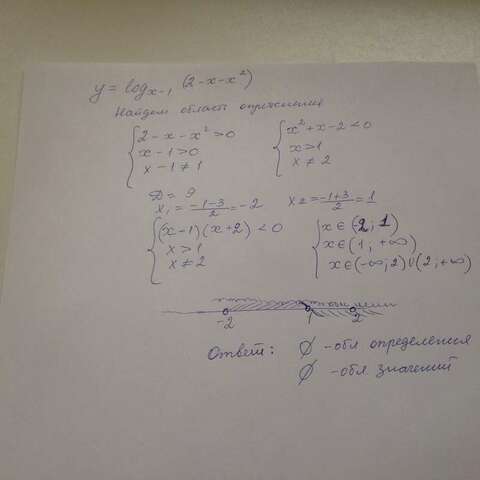 y = log_{x-1} (2-x-x²)
Найдем область определения
{ 2-x-x²>0 { x²+x-2<0
x-1>0 x>1
x-1≠1 x≠2
D = 9
x₁ = (-1-3)/2 = -2 x₂ = (-1+3)/2 = 1
{ (x-1)(x+2)<0 { x∈(-2; 1)
x>1 x∈(1; +∞)
x≠2 x∈(-∞; 2)∪(2; +∞)
-2 1 2
Ответ: ∅ - обл определения
∅ - обл значений